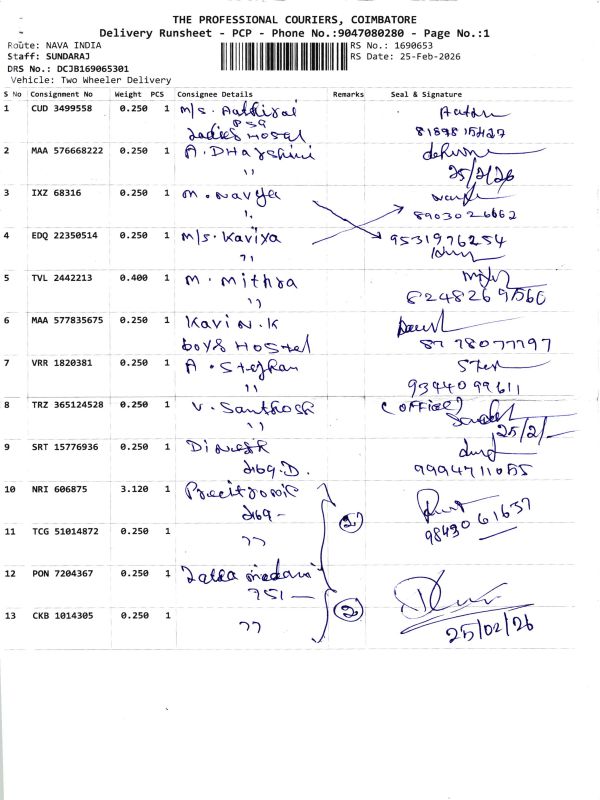 THE PROFESSIONAL COURIERS, COIMBATORE
Delivery Runsheet - PCP - Phone No.:9047080280 - Page No.:1
Route: NAVA INDIA
RS No.: 1690653
Staff: SUNDARAJ
RS Date: 25-Feb-2026
DRS No.: DCJB169065301
Vehicle: Two Wheeler Delivery
S No Consignment No Weight PCS Consignee Details Remarks Seal & Signature
1 CUD 3499558 0.250 1 M/s. Aathirai
PSG
Ladies Hostel
2 MAA 576668222 0.250 1 A. Dharshini
"
25/2/26
3 IXZ 68316 0.250 1 M. Navya
"
8903026662
4 EDQ 22350514 0.250 1 M/s. Kaviya 9531976254
"
5 TVL 2442213 0.400 1 M. Mithra
"
6 MAA 577835675 0.250 1 Kavi N. K
boys Hostel
8778077797
7 VRR 1820381 0.250 1 A. Stephan
"
9344099611
8 TRZ 365124528 0.250 1 V. Santhosh (office)
"
25/2/-
9 SRT 15776936 0.250 1 Dinesh
D.
9994711055
10 NRI 606875 3.120 1
(2)
9843061637
11 TCG 51014872 0.250 1 "
12 PON 7204367 0.250 1
751 —
(2)
13 CKB 1014305 0.250 1 "
25/02/26